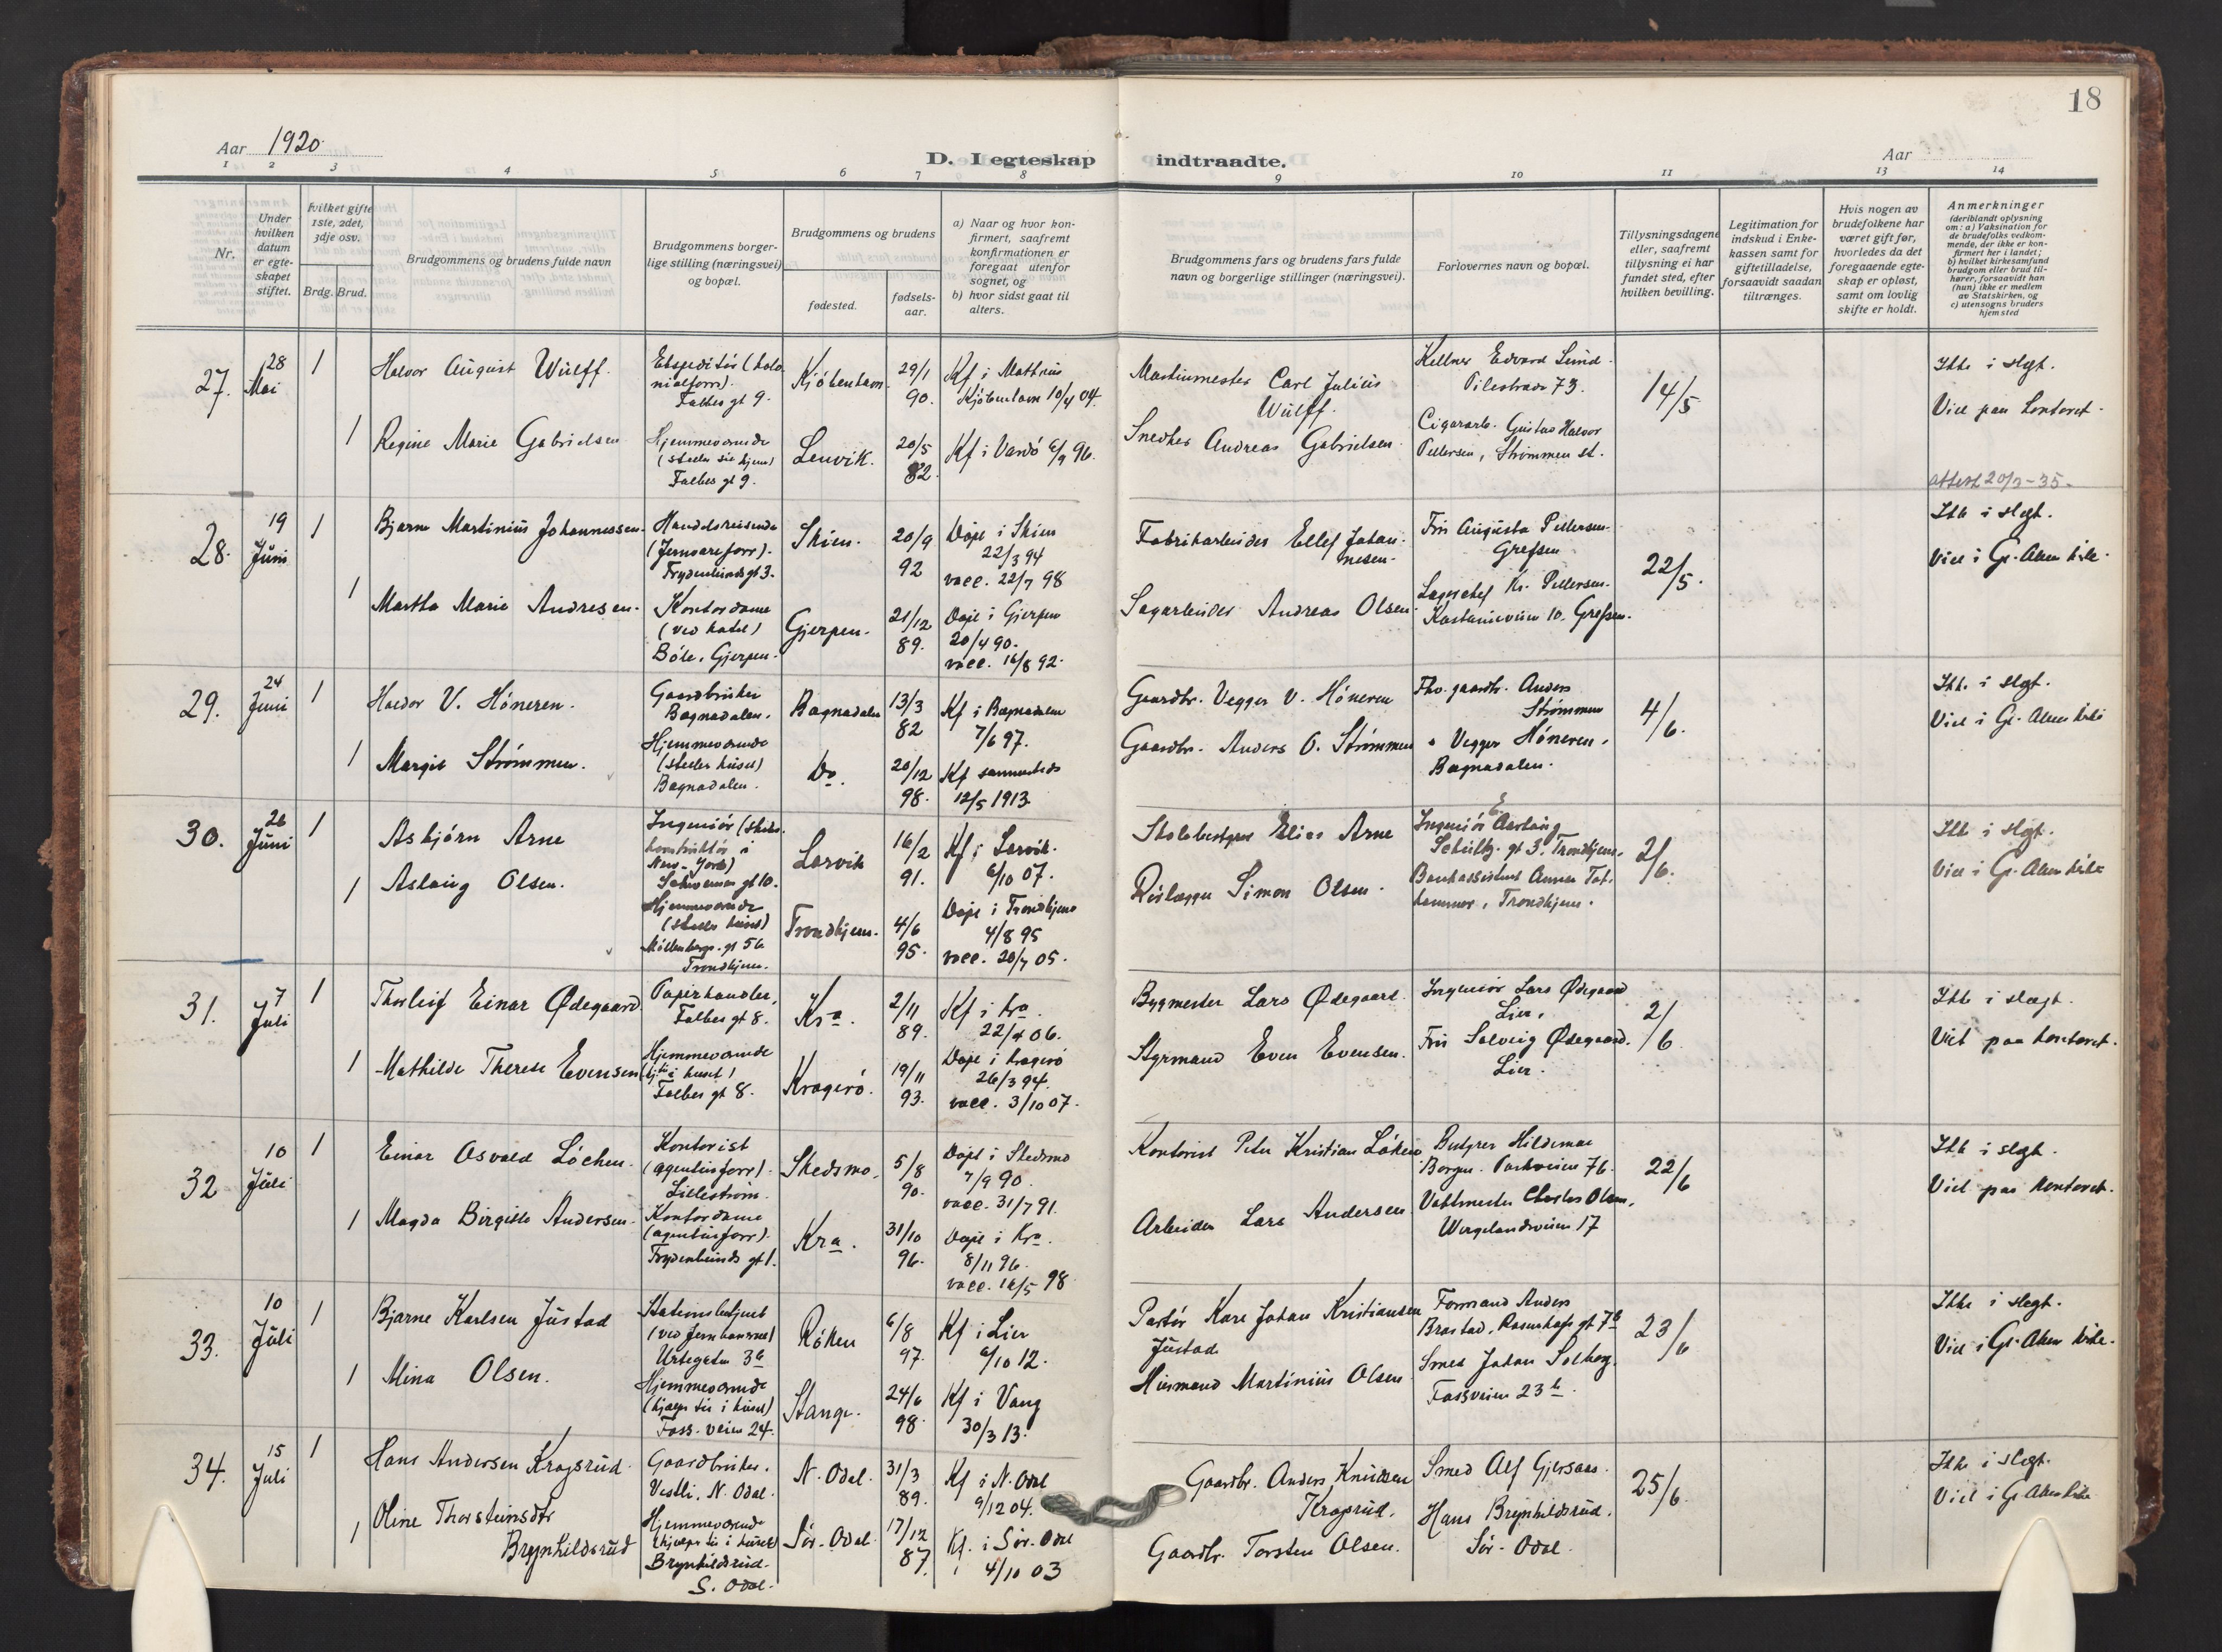 18
Aar 1920.
D. I egteskap indtraadte.
Aar
1 2 3 4 5 6 7 8 9 10 11 13 14
Nr.
Under hvilken datum er egte-skapet stiftet.
Hvilket gifte 1ste, 2det, 3dje osv.
Brdg. Brud.
Brudgommens og brudens fulde navn
Brudgommens borger-
lige stilling (næringsvei)
og bopæl.
Brudgommens og brudens
fødested.
fødsels-
aar.
a) Naar og hvor kon-
firmert, saafremt
konfirmationen er
foregaat utenfor
sognet, og
b) hvor sidst gaat til
alters.
Brudgommens fars og brudens fars fulde
navn og borgerlige stillinger (næringsvei).
Forlovernes navn og bopæl.
Tillysningsdagene
eller, saafremt
tillysning ei har
fundet sted, efter
hvilken bevilling.
Legitimation for
indskud i Enke-
kassen samt for
giftetilladelse,
forsaavidt saadan
tiltrænges.
Hvis nogen av
brudefolkene har
været gift før,
hvorledes da det
foregaaende egte-
skap er opløst,
samt om lovlig
skifte er holdt.
Anmerkninger
(deriblandt oplysning
om: a) Vaksination for
de brudefolks vedkom-
mende, der ikke er kon-
firmert her i landet;
b) hvilket kirkesamfund
brudgom eller brud til-
hører, forsaavidt han
(hun) ikke er medlem
av Statskirken, og
c) utensogns bruders
hjemsted
27. 28 Mai 1
Halvor August Wulff.
Falbes gt 9.
Kjøbenhavn.
29/1
90.
Kf i Mattæus
Kjøbenhavn 10/4 04.
Carl Julius
Wulff.
Kellner Edvard Lund.
Pilestræde 73.
14/5
Ikke i slegt.
Viet paa kontoret.
1 Regine Marie Gabrielsen
Hjemmeværende
Falbes gt 9.
Lenvik.
20/5
82.
Kf i Vardø 6/9 96.
Snedker Andreas Gabrielsen.
Cigararb. Gustav Halvor
Pettersen, Strømmen st.
attest 20/3-35.
28. 19 Juni 1
Bjarne Martinius Johannessen.
Handelsreisende
(Jernvareforr).
Frydenlundsgt 3.
Skien.
20/9
92
Døpt i Skien
22/3 94
vacc. 22/7 98
Fabrikarbeider Ellef Johan-
nesen.
Frk Augusta Pettersen.
Grefsen
22/5.
Ikke i slegt.
Viet i Gl. Aker kirke.
1 Martha Marie Andresen.
Kontordame
(ved hotel)
Bøle, Gjerpen.
Gjerpen.
21/12
89.
Døpt i Gjerpen
20/4 90.
vacc. 16/8 92.
Sagarbeider Andreas Olsen.
Lagerchef Kr. Pettersen.
Kastanieveien 10. Grefsen.
29. 24 Juni 1
Haldor V. Høneren.
Gaardbruker
Bagnadalen.
Bagnadalen
13/3
82
Kf i Bagnadalen
7/6 97.
Gaardbr. Vegger V. Høneren
Fhv. gaardbr. Anders
Strømmen
4/6.
Ikke i slegt.
Viet i Gl. Aker kirke
1 Margit Strømmen.
Hjemmeværende
(steller huset)
Bagnadalen.
Do.
20/12
98.
Kf sammesteds
12/5 1913.
Gaardbr. Anders O. Strømmen
Vegger Høneren,
Bagnadalen.
30. 26 Juni 1
Asbjørn Arne
konstruktør i
New-York)
Schwensens gt 10.
Larvik
16/2
91.
Kf i Larvik.
6/10 07.
Skolebestyrer Elias Arne
Ingeniør E Aarlaug
Schultz. gt 3. Trondhjem.
2/6.
Ikke i slegt.
Viet i Gl. Aker kirke
1 Aslaug Olsen.
Hjemmeværende
(steller huset)
Møllenbergs. gt 56
Trondhjem.
Trondhjem.
4/6
95.
Døpt i Trondhjem
4/8 95
vacc. 20/7 05.
Rørlægger Simon Olsen.
Bankassistent Anna
Trondhjem.
31. 7 Juli 1
Thorleif Einar Ødegaard
Papirhandler,
Falbes gt 8.
Kra.
2/11
89.
Kf i Kra.
22/4 06.
Bygmester Lars Ødegaard.
Ingeniør Lars Ødegaard
Lier.
2/6
Ikke i slægt.
Viet paa kontoret.
1 Mathilde Therese Evensen
Hjemmeværende
Falbes gt 8.
Kragerø.
19/11
93.
Døpt i Kragerø
26/3 94.
vacc. 3/10 07.
Styrmand Even Evensen.
Frk Solveig Ødegaard.
Lier.
32 10 Juli 1
Einar Osvald Løchen.
Kontorist
(agenturforr).
Lillestrøm.
Skedsmo.
5/8
90.
Døpt i Skedsmo
7/9 90.
vacc. 31/7 91.
Kontorist Peter Kristian Løken
Hildemar
Borgen. Parkveien 76.
22/6
Ikke i slegt.
Viet paa kontoret.
1 Magda Birgitte Andersen.
Kontordame
(agenturforr).
Frydenlunds gt 1.
Kra.
31/10
96.
Døpt i Kra.
8/11 96.
vacc. 16/5 98
Arbeider Lars Andersen
Vaktmester Charles Olsen,
Wergelandsveien 17
33. 10 Juli 1
Bjarne Karlsen Justad
Stationsbetjent
(ved Jernbanene)
Urtegaten 3a
Røken
6/8
97.
Kf i Lier
6/10 12.
Portør Karl Johan Kristiansen
Justad
Formand Anders
Brastad, Rosenhofs gt 7b
23/6
Ikke i slegt.
Viet i Gl. Aker kirke.
1 Mina Olsen.
Hjemmeværende
(hjælper til i huset)
Foss-veien 24.
Stange.
24/6
98.
Kf i Vang
30/3 13.
Husmand Martinius Olsen
Smed Johan Solberg,
Fossveien 23b.
34. 15 Juli 1
Hans Andersen Kragsrud.
Gaardbruker.
Vestli, N. Odal.
N. Odal.
31/3
89.
Kf i N. Odal
9/12 04.
Gaardbr. Anders Knudsen
Kragsrud.
Smed Alf Gjersaas.
25/6
Ikke i slegt.
Viet i Gl Aker kirke
1 Oline Thorsteinsdtr
Brynhildsrud
Hjemmeværende
(hjælper til i huset)
Brynhildsrud.
S. Odal.
Sør-Odal.
17/12
87.
Kf. i Sør-Odal
4/10 03
Gaardbr. Torsten Olsen.
Hans Brynhildsrud.
Sør-Odal.